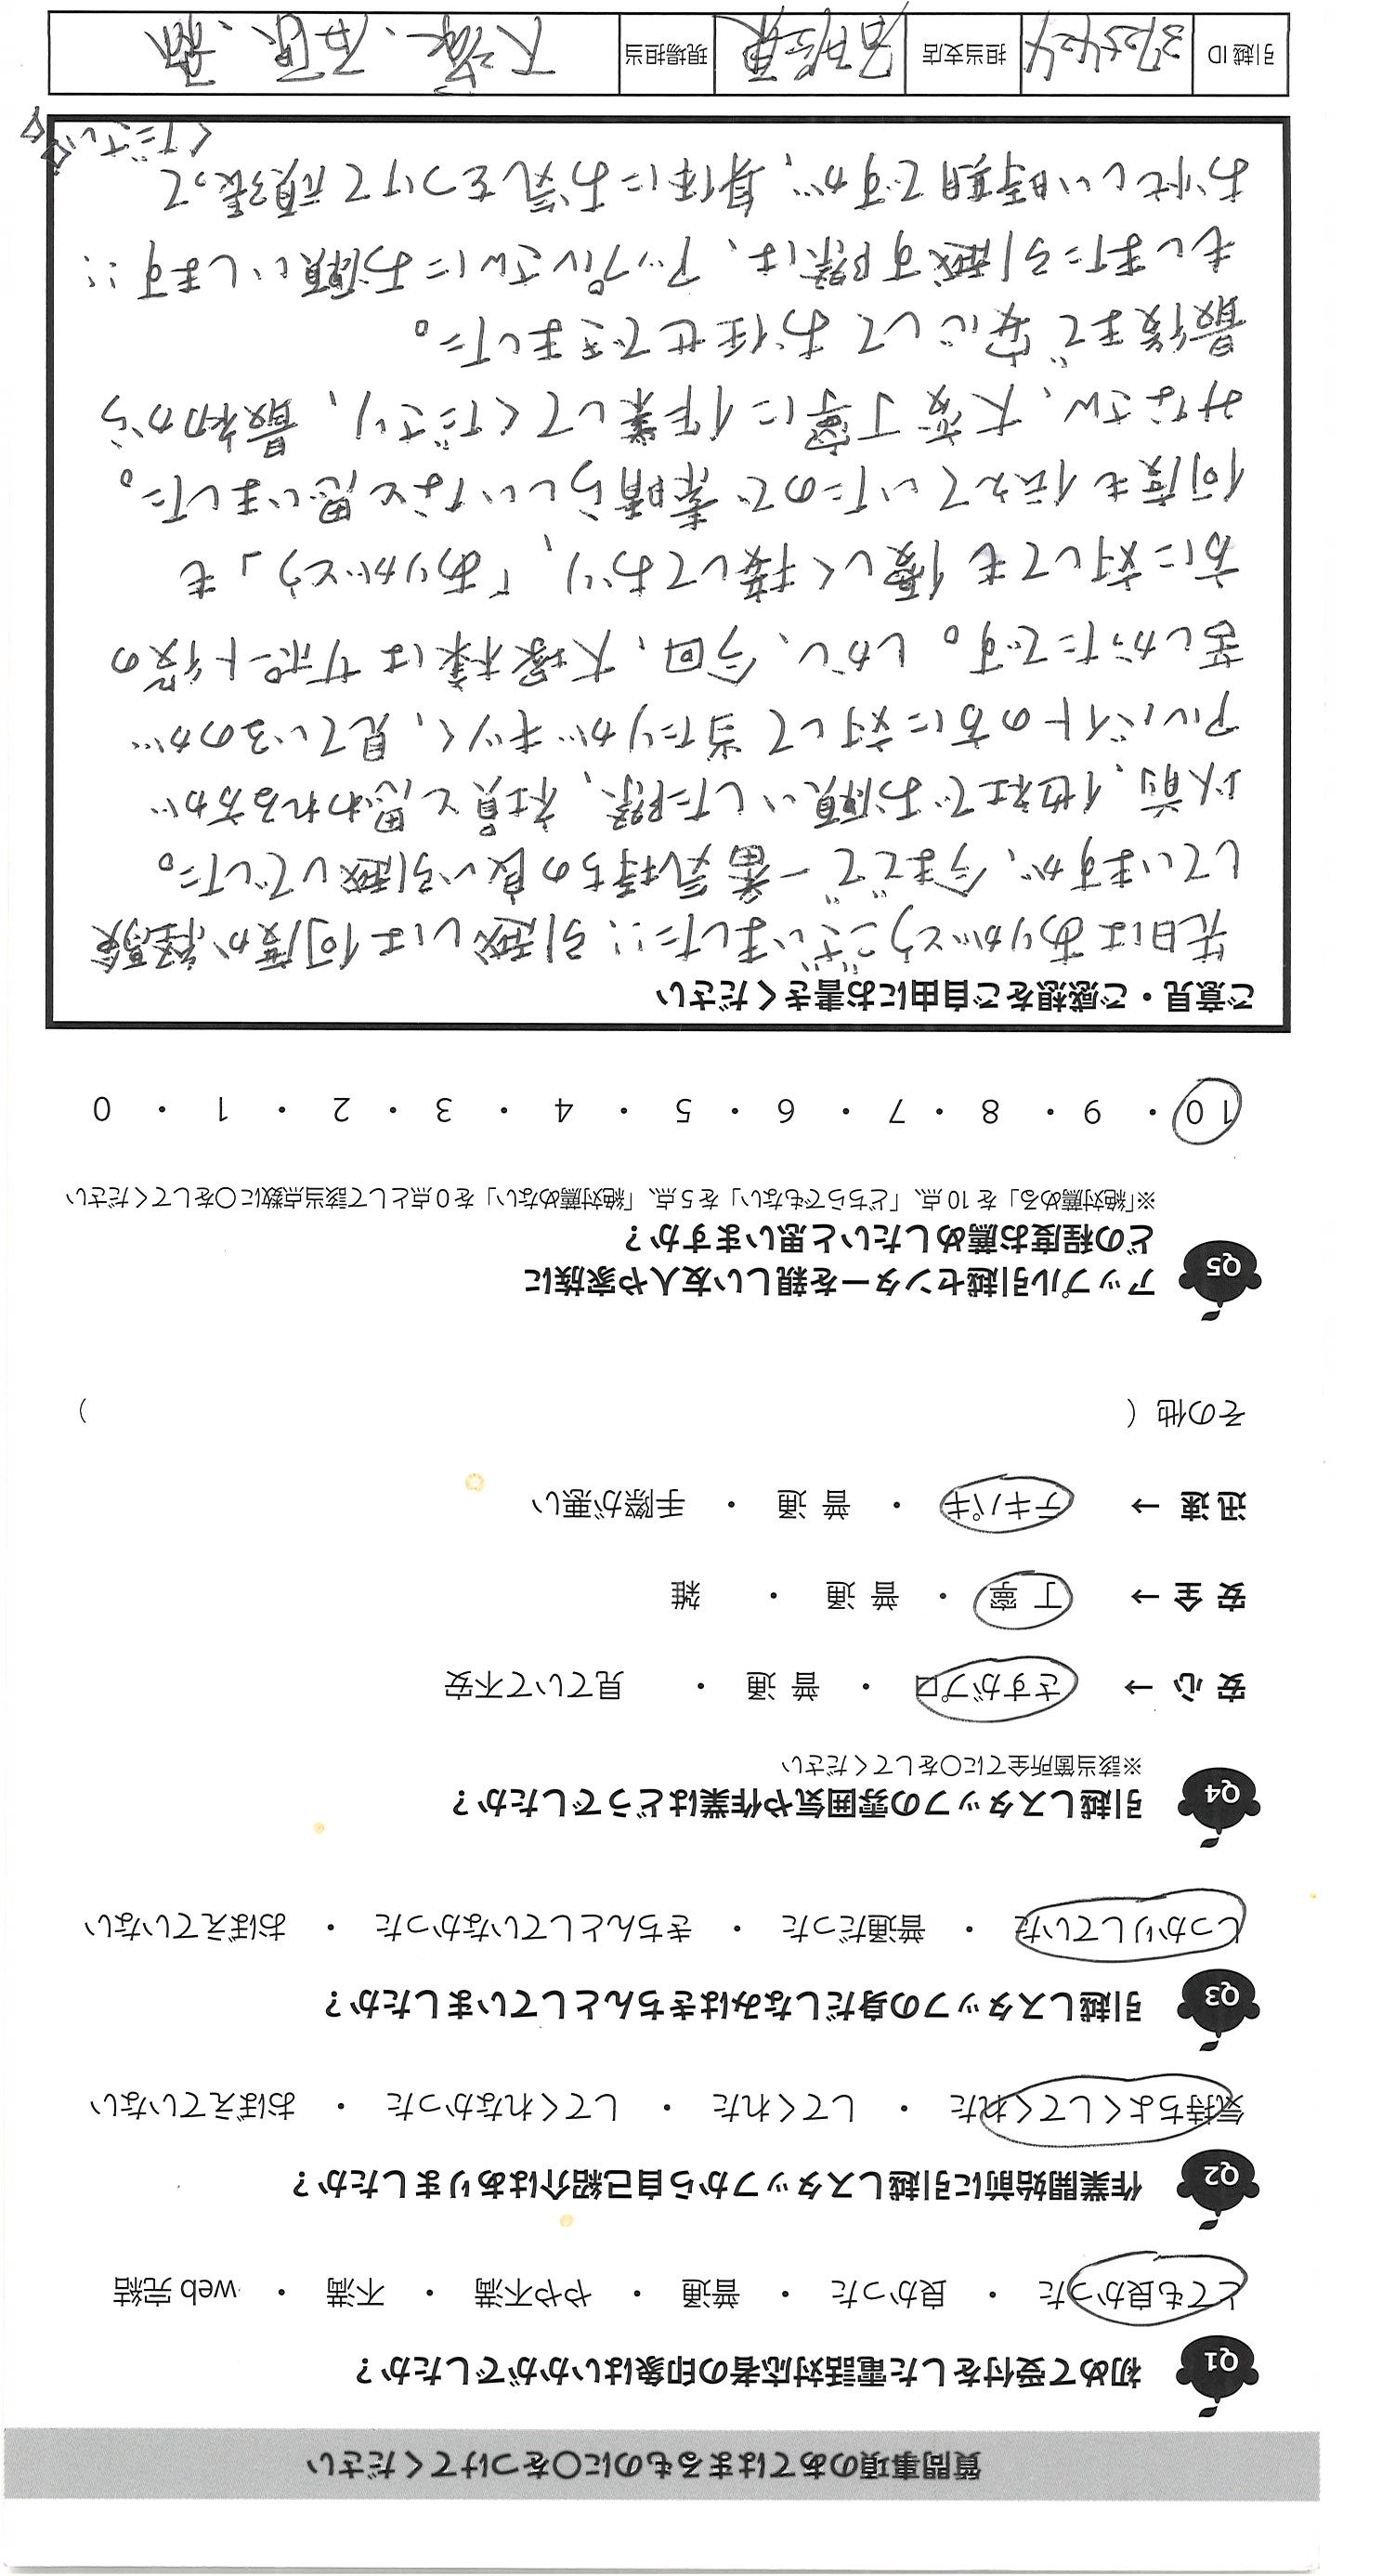 質問事項のあてはまるものに○をつけてください
Q1 初めて受付をした電話対応者の印象はいかがでしたか？
とても良かった ・ 良かった ・ 普通 ・ やや不満 ・ 不満 ・ web 完結
Q2 作業開始前に引越しスタッフから自己紹介はありましたか？
気持ちよくしてくれた ・ してくれた ・ してくれなかった ・ おぼえていない
Q3 引越しスタッフの身だしなみはきちんとしていましたか？
しっかりしていた ・ 普通だった ・ きちんとしていなかった ・ おぼえていない
Q4 引越しスタッフの雰囲気や作業はどうでしたか？
※該当箇所全てに○をしてください
安 心 → さすがプロ ・ 普 通 ・ 見ていて不安
安 全 → 丁 寧 ・ 普 通 ・ 雑
迅 速 → テキパキ ・ 普 通 ・ 手際が悪い
その他（ ）
Q5 アップル引越センターを親しい友人や家族に
どの程度お薦めしたいと思いますか？
※「絶対薦める」を 10 点、「どちらでもない」を 5 点、「絶対薦めない」を 0 点として該当点数に○をしてください
10 ・ 9 ・ 8 ・ 7 ・ 6 ・ 5 ・ 4 ・ 3 ・ 2 ・ 1 ・ 0
ご意見・ご感想をご自由にお書きください
先日はありがとうございました!! 引越しは何度か経験
していますが、今まで一番気持ちの良い引越しでした。
以前、他社でお願いした際、社員と思われる方が
アルバイトの方に対して当たりがキツく、見ているのが
苦しかったです。しかし、今回、大塚様はサポート役の
方に対しても優しく接しており、「ありがとう」も
何度も伝えていたので素晴らしいなと思いました。
みなさん、大変丁寧に作業してくださり、最初から
最後まで安心してお任せできました。
もしまた引越す際は、アップルさんにお願いします!!
お忙しい時期ですが、身体にお気をつけて頑張って
ください
引越 ID 担当支店 現場担当 大塚、